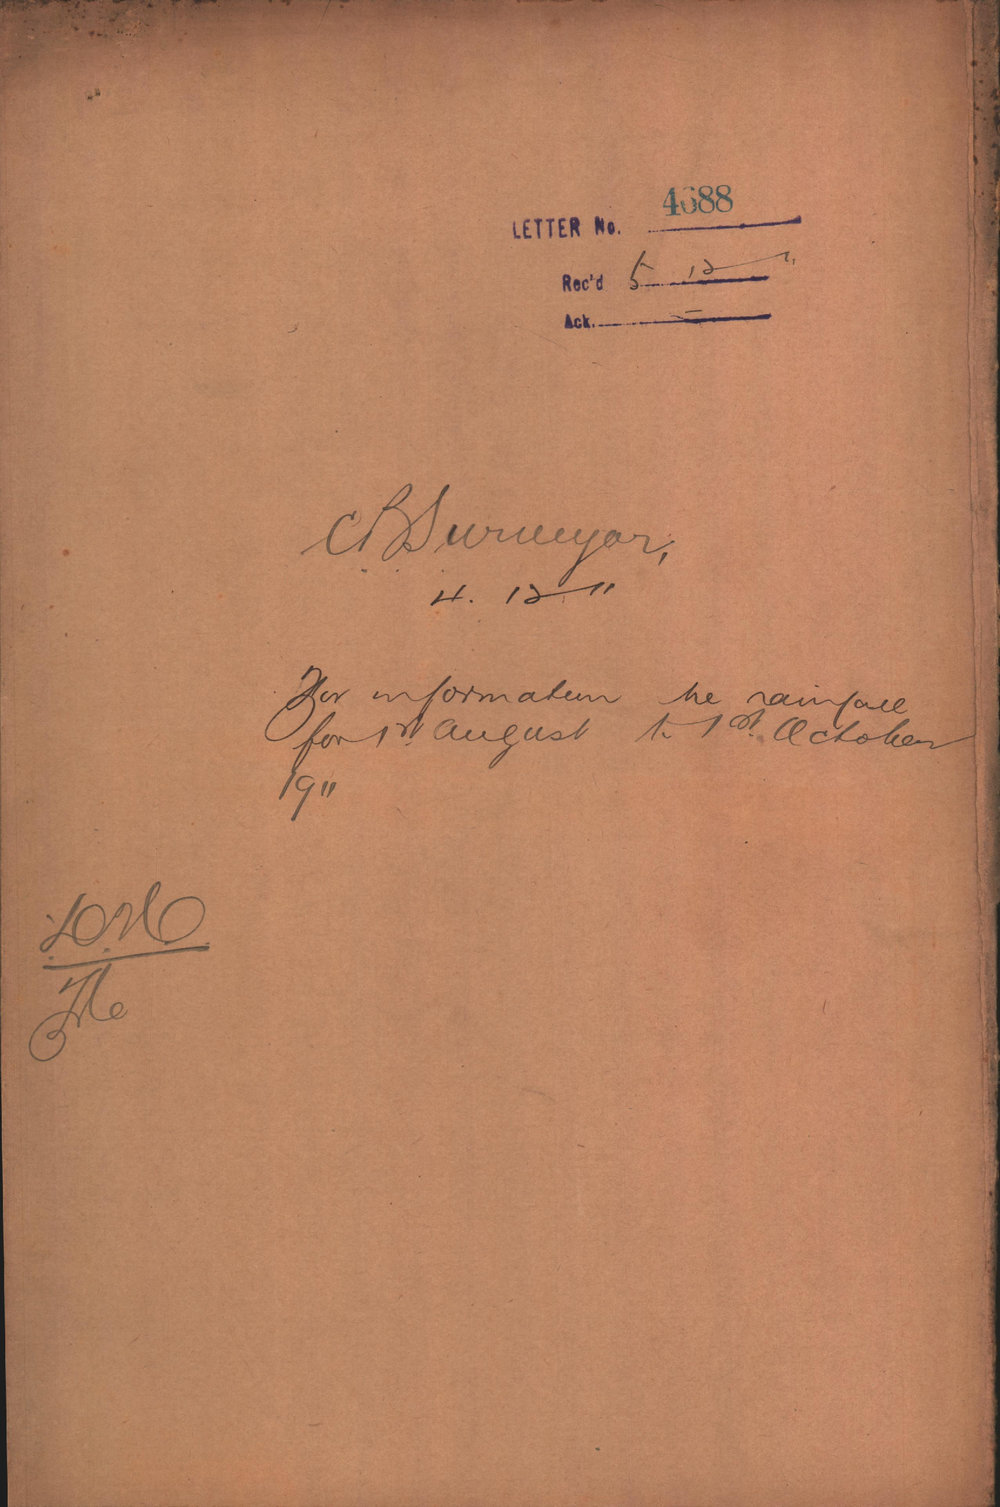 LETTER No. 4688
Rec'd 5 12 11
Ack.
C B Surveyor,
4. 12 11
For information re rainfall
for 1st August to 1st October
1911
File